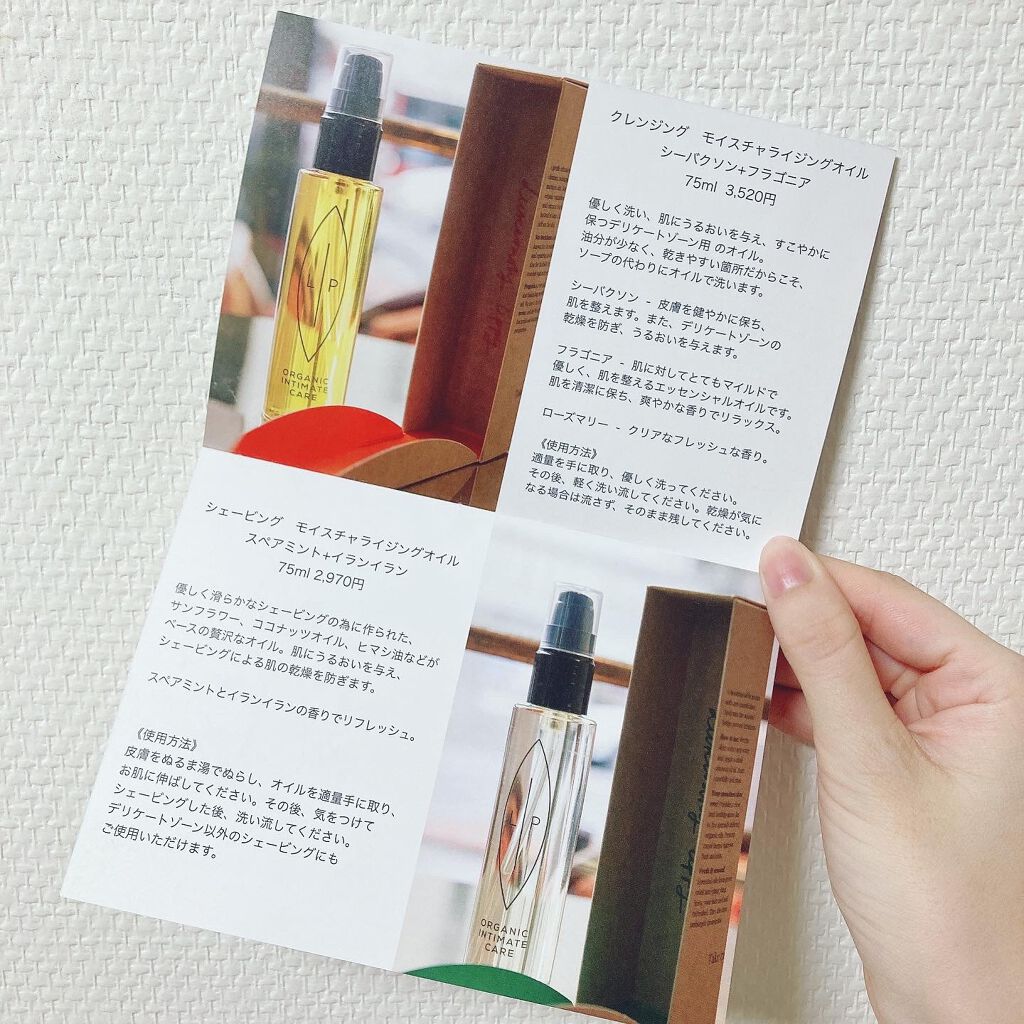 クレンジング　モイスチャライジングオイル
シーバクソン+フラゴニア
75ml 3,520円
優しく洗い、肌にうるおいを与え、すこやかに
保つデリケートゾーン用 のオイル。
油分が少なく、乾きやすい箇所だからこそ、
ソープの代わりにオイルで洗います。
シーバクソン - 皮膚を健やかに保ち、
肌を整えます。また、デリケートゾーンの
乾燥を防ぎ、うるおいを与えます。
フラゴニア - 肌に対してとてもマイルドで
優しく、肌を整えるエッセンシャルオイルです。
肌を清潔に保ち、爽やかな香りでリラックス。
ローズマリー - クリアなフレッシュな香り。
《使用方法》
適量を手に取り、優しく洗ってください。
その後、軽く洗い流してください。乾燥が気に
なる場合は流さず、そのまま残してください。
L P
ORGANIC
INTIMATE
CARE
シェービング　モイスチャライジングオイル
スペアミント+イランイラン
75ml 2,970円
優しく滑らかなシェービングの為に作られた、
サンフラワー、ココナッツオイル、ヒマシ油などが
ベースの贅沢なオイル。肌にうるおいを与え、
シェービングによる肌の乾燥を防ぎます。
スペアミントとイランイランの香りでリフレッシュ。
《使用方法》
皮膚をぬるま湯でぬらし、オイルを適量手に取り、
お肌に伸ばしてください。その後、気をつけて
シェービングした後、洗い流してください。
デリケートゾーン以外のシェービングにも
ご使用いただけます。
L P
ORGANIC
INTIMATE
CARE